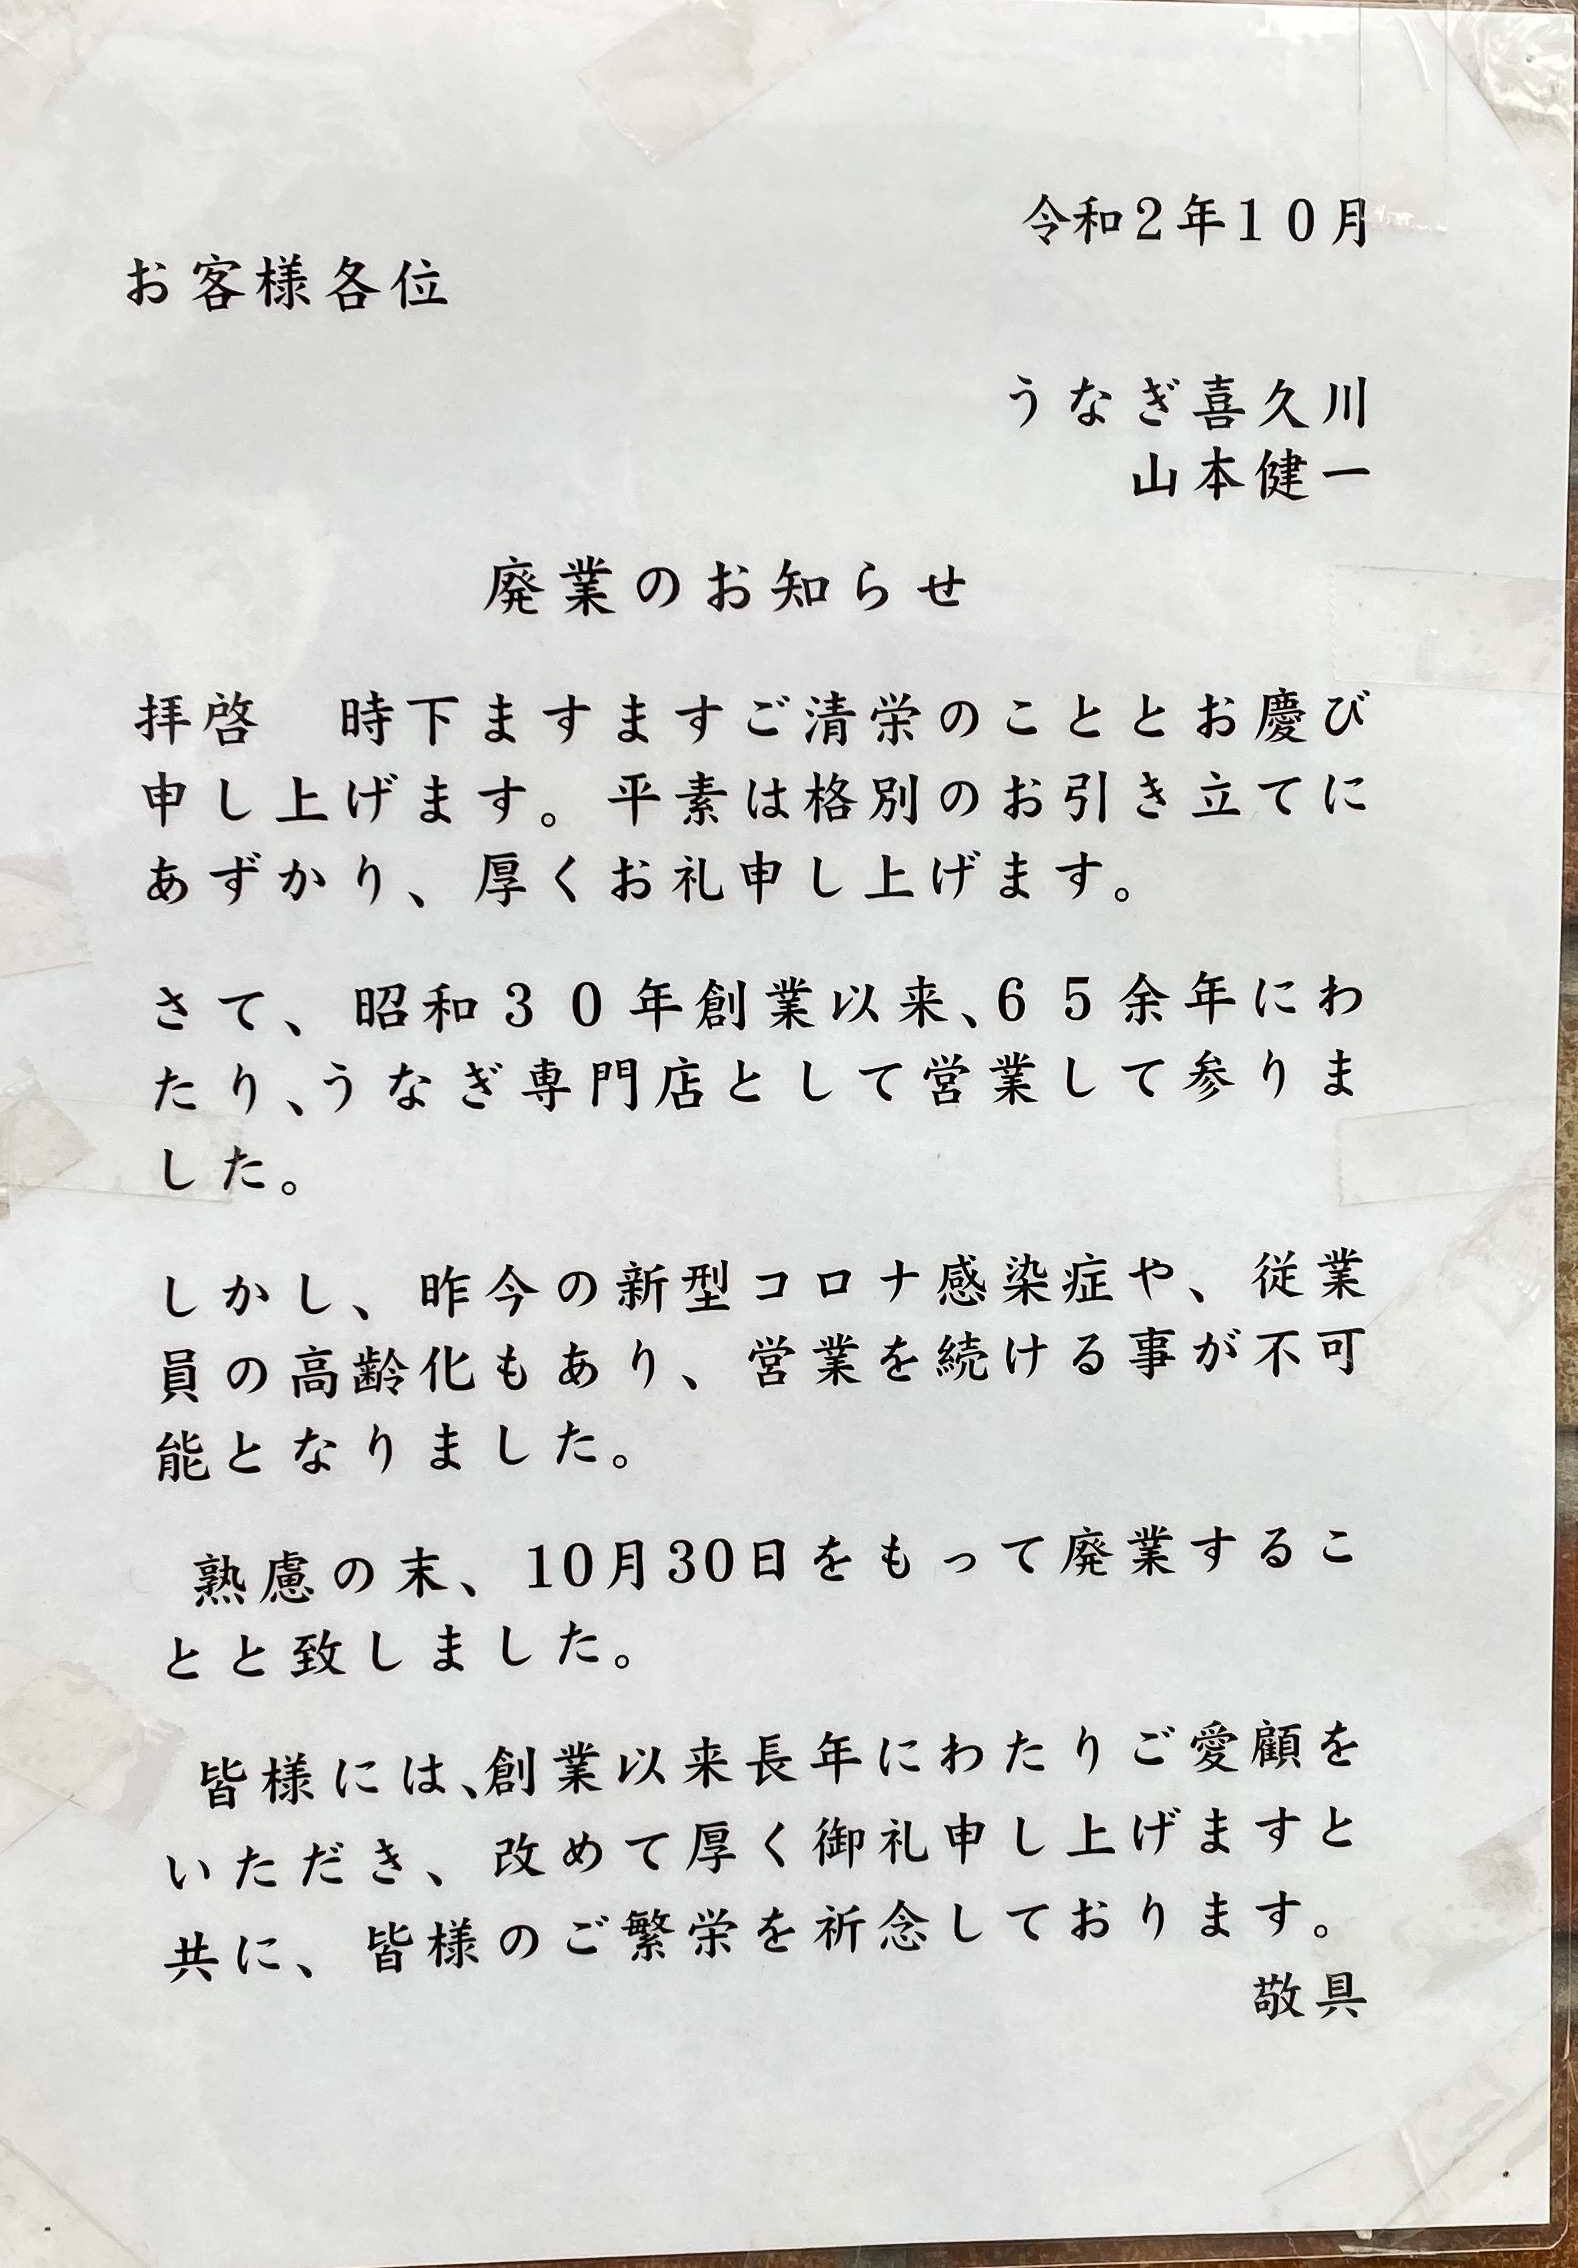 令和２年１０月
お客様各位
うなぎ喜久川
山本健一
廃業のお知らせ
拝啓　時下ますますご清栄のこととお慶び
申し上げます。平素は格別のお引き立てに
あずかり、厚くお礼申し上げます。
さて、昭和３０年創業以来、６５余年にわ
たり、うなぎ専門店として営業して参りま
した。
しかし、昨今の新型コロナ感染症や、従業
員の高齢化もあり、営業を続ける事が不可
能となりました。
熟慮の末、10月30日をもって廃業するこ
とと致しました。
皆様には、創業以来長年にわたりご愛顧を
いただき、改めて厚く御礼申し上げますと
共に、皆様のご繁栄を祈念しております。
敬具